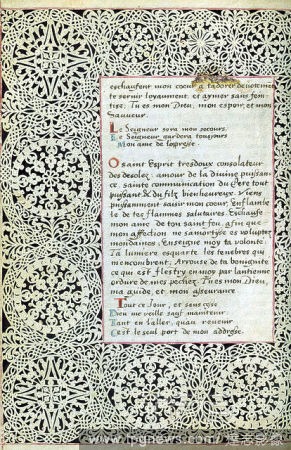 eschaufent mon coeur a t'adorer devotement
te servir loyaument, et aymer sans fein
tise. Tu es mon Dieu, mon espoir, et mon
Sauveur.
Le Seigneur sera mon secours,
Le Seigneur gardera tousjours
Mon ame de
O saint Esprit tresdoux consolateur
des desolez, amour de la divine puissan
ce, sainte communication du Pere tout
puissant & du filz bienheureux, viens
puissamment saisir mon coeur, Enflambe
le de tes flammes salutaires, Eschaufe
mon ame de ton saint feu, afin que
mon affection ne s'amortise es voluptez
mondaines, Enseigne moy ta volonte,
Ta lumiere esquarte les tenebres qui
m'encombrent, Arrouse de ta benignite
ce qui est flestry en moy par l'antienne
ordure de mes pechez. Tu es mon Dieu,
ma guide, et mon asseurance
Tout ce Jour, et sens
Dieu me veille sauf maintenir
Tant en l'aller, qu'au revenir
C'est le seul port de mon addresse.
www.ipgnews.com